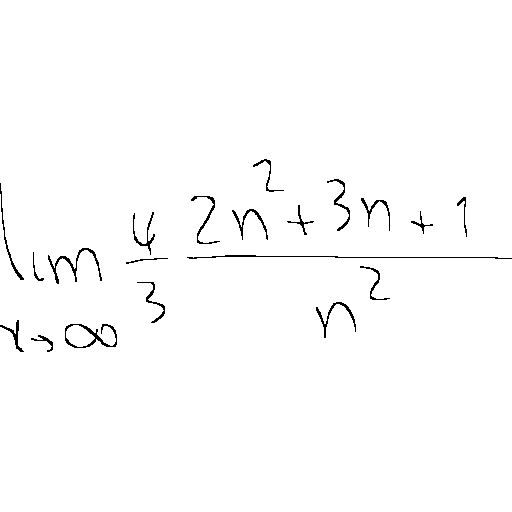 \lim_{x \to \infty} \frac{4}{3} \frac{2n^2+3n+1}{n^2}